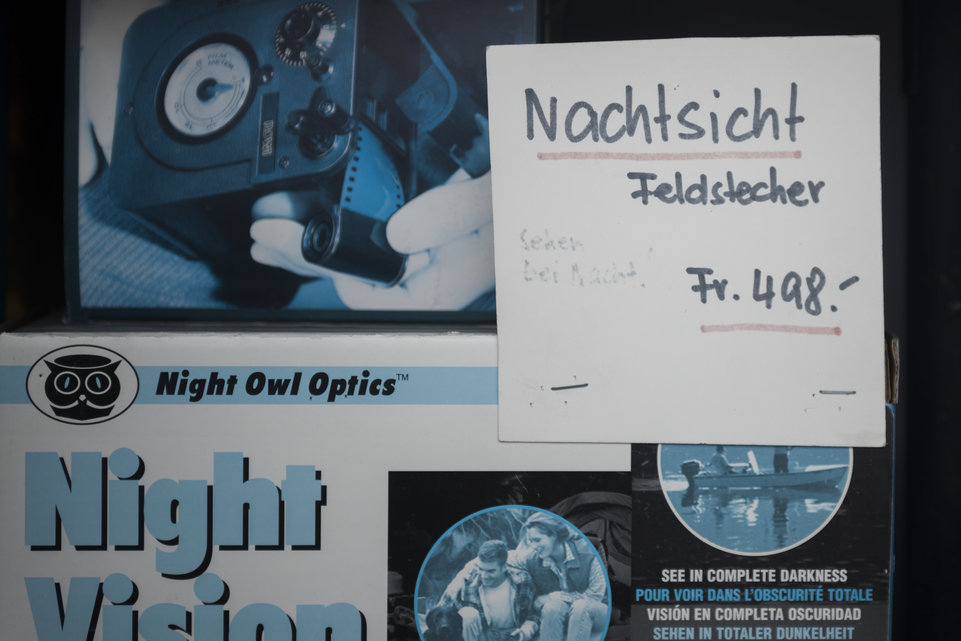 FILM
METER
Nachtsicht
Feldstecher
sehen
bei Nacht!
Fr. 498.-
Night Owl Optics™
Night
Vision
SEE IN COMPLETE DARKNESS
POUR VOIR DANS L'OBSCURITÉ TOTALE
VISIÓN EN COMPLETA OSCURIDAD
SEHEN IN TOTALER DUNKELHEIT